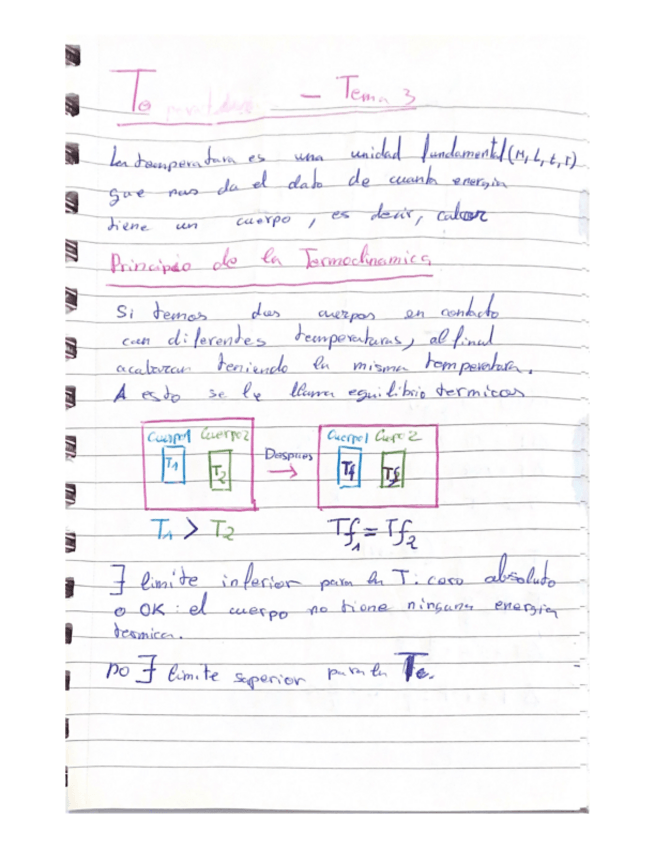 Tº — Tema 3
La temperatura es una unidad fundamental (M, L, t, T)
que nos da el dato de cuanta energia
tiene un cuerpo, es decir, calor
Principio de la Termodinamica
Si temos dos cuerpos en contacto
con diferentes temperaturas, al final
acabaran teniendo la misma temperatura.
A esto se le llama equilibrio termicos
Cuerpo1 Cuerpo2 Despues Cuerpo1 Cuerpo 2
T1 T2 Tf Tf2
T1 > T2 Tf1 = Tf2
∃ limite inferior para la T: cero absoluto
o OK: el cuerpo no tiene ninguna energia
termica.
no ∃ limite superior para la Tº.